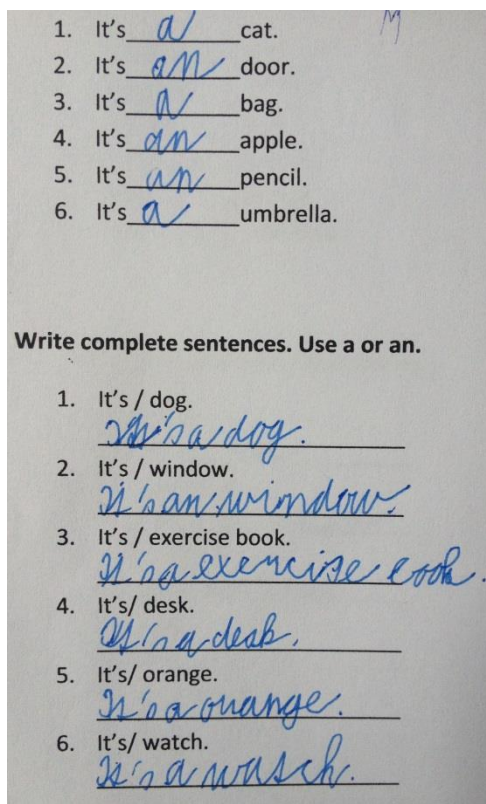 1. It's a cat.
2. It's an door.
3. It's a bag.
4. It's an apple.
5. It's an pencil.
6. It's a umbrella.
Write complete sentences. Use a or an.
1. It's / dog.
It's a dog.
2. It's / window.
It's an window.
3. It's / exercise book.
It's a exercise book.
4. It's/ desk.
It's a desk.
5. It's/ orange.
It's a orange.
6. It's/ watch.
It's a watch.